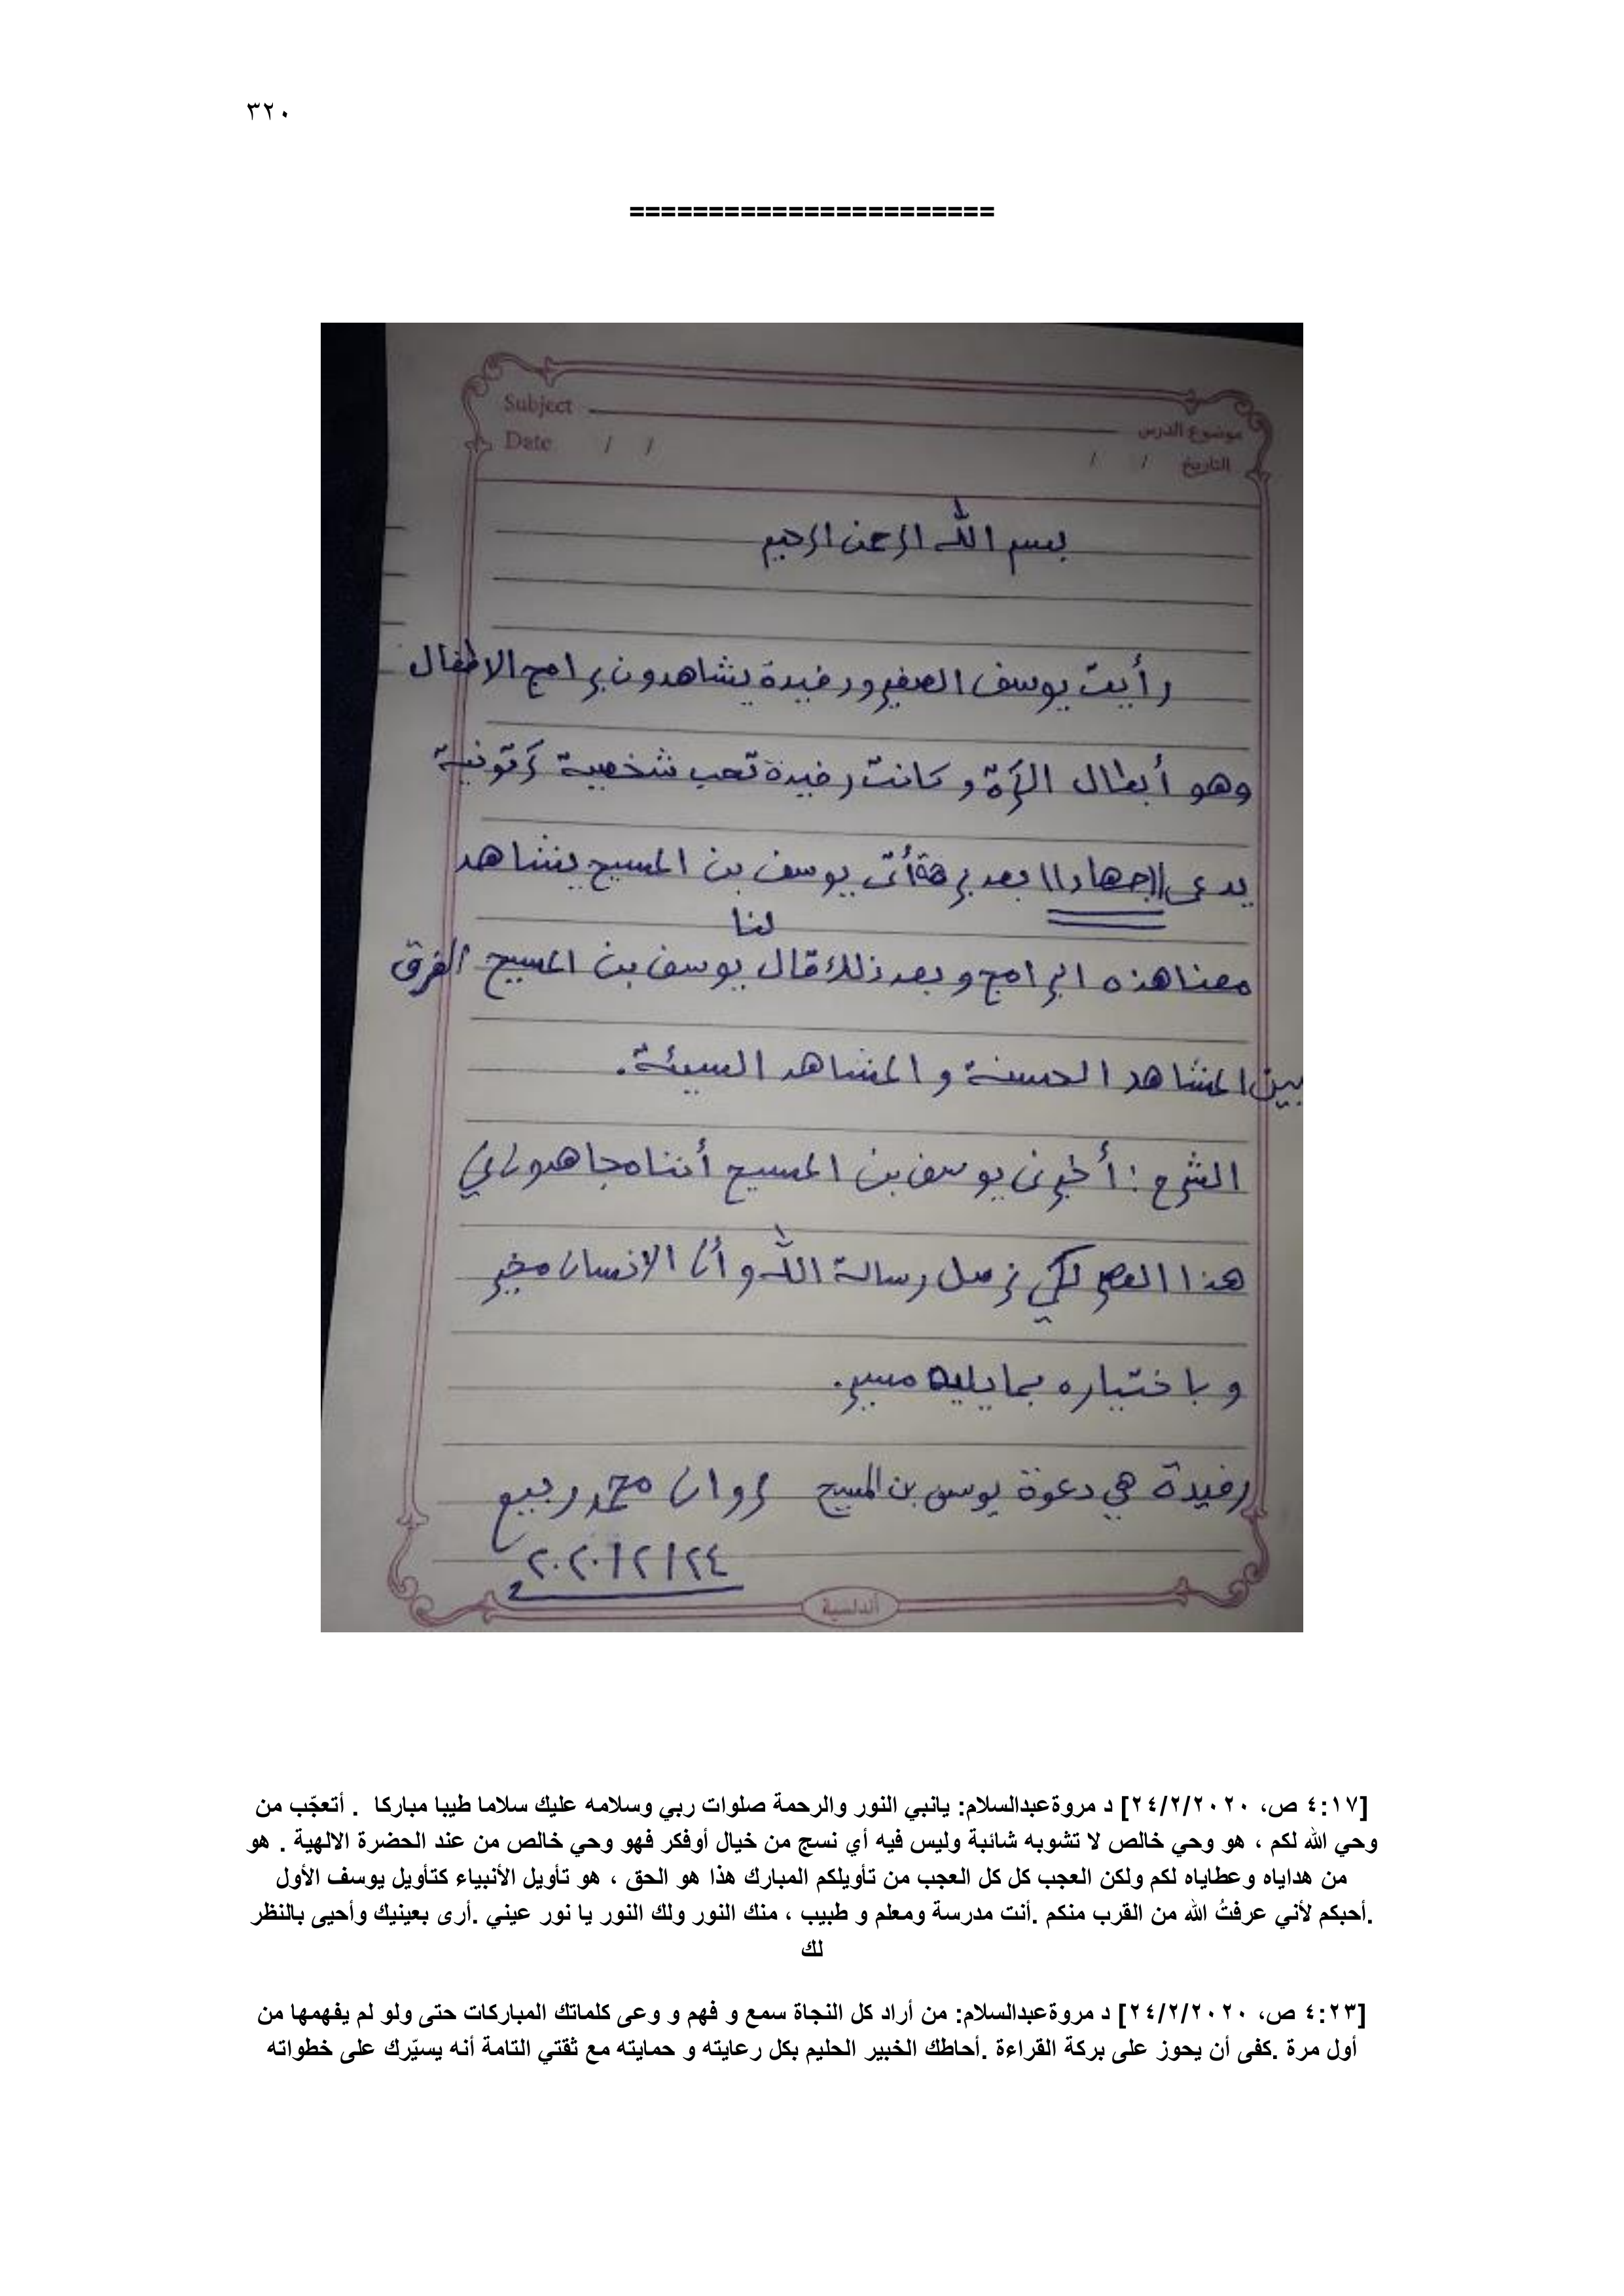 ٣٢٠
=======================
Subject موضوع الدرس
Date / / التاريخ / /
بسم الله الرحمن الرحيم
رأيت يوسف الصغير ورفيدة يشاهدون برامج الاطفال
وهو أبطال الكرة و كانت رفيدة تحب شخصية كرتونية
يدعى "جهاد" بعد برهة أتى يوسف بن المسيح يشاهد
معنا هذه البرامج و بعد ذلك قال لنا يوسف بن المسيح الفرق
بين المشاهد الحسنة و المشاهد السيئة.
الشرح : أخبرنى يوسف بن المسيح أننا مجاهدون في
هذا العصر لكي نرسل رسالة الله و أن الانسان مخير
و باختياره بما يليه مسير.
رفيدة هي دعوة يوسف بن المسيح مروان محمد ربيع
٢٠٢٠/٢/٢٤
أندلسية
[٤:١٧ ص، ٢٤/٢/٢٠٢٠] د مروةعبدالسلام: يانبي النور والرحمة صلوات ربي وسلامه عليك سلاما طيبا مباركا . أتعجّب من
وحي الله لكم ، هو وحي خالص لا تشوبه شائبة وليس فيه أي نسج من خيال أوفكر فهو وحي خالص من عند الحضرة الالهية . هو
من هداياه وعطاياه لكم ولكن العجب كل كل العجب من تأويلكم المبارك هذا هو الحق ، هو تأويل الأنبياء كتأويل يوسف الأول
.أحبكم لأني عرفتُ الله من القرب منكم .أنت مدرسة ومعلم و طبيب ، منك النور ولك النور يا نور عيني .أرى بعينيك وأحيى بالنظر
لك
[٤:٢٣ ص، ٢٤/٢/٢٠٢٠] د مروةعبدالسلام: من أراد كل النجاة سمع و فهم و وعى كلماتك المباركات حتى ولو لم يفهمها من
أول مرة .كفى أن يحوز على بركة القراءة .أحاطك الخبير الحليم بكل رعايته و حمايته مع ثقتي التامة أنه يسيّرك على خطواته